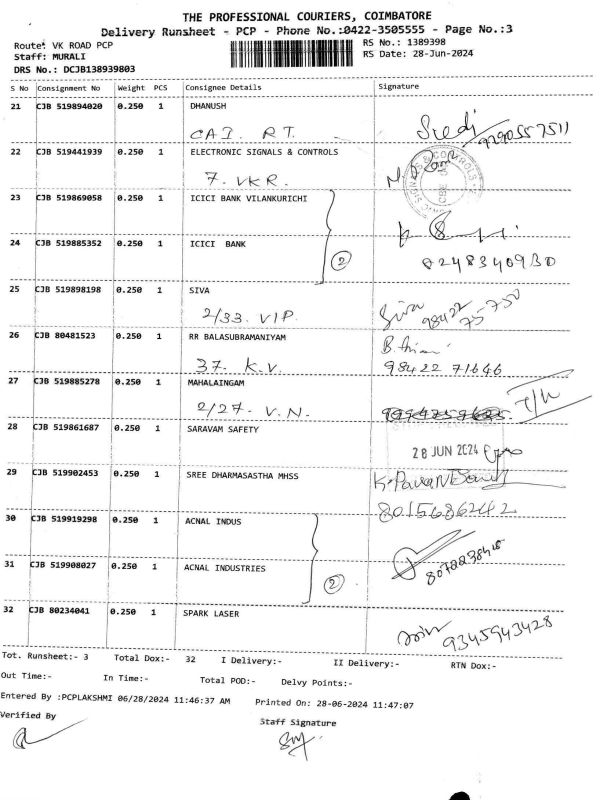 THE PROFESSIONAL COURIERS, COIMBATORE
Delivery Runsheet - PCP - Phone No.:0422-3505555 - Page No.:3
Route: VK ROAD PCP RS No.: 1389398
Staff: MURALI RS Date: 28-Jun-2024
DRS No.: DCJB138939803
S No Consignment No Weight PCS Consignee Details Signature
21 CJB 519894020 0.250 1 DHANUSH
CAI. R.T.
9290557511
22 CJB 519441939 0.250 1 ELECTRONIC SIGNALS & CONTROLS
7. VKR.
23 CJB 519869058 0.250 1 ICICI BANK VILANKURICHI
24 CJB 519885352 0.250 1 ICICI BANK
2
25 CJB 519898198 0.250 1 SIVA
2/33. VIP. Siva 98422 75750
26 CJB 80481523 0.250 1 RR BALASUBRAMANIYAM
37. K.V. 98422 71646
27 CJB 519885278 0.250 1 MAHALAINGAM
2/27. V.N.
28 CJB 519861687 0.250 1 SARAVAM SAFETY
28 JUN 2024
29 CJB 519902453 0.250 1 SREE DHARMASASTHA MHSS
8015686242
30 CJB 519919298 0.250 1 ACNAL INDUS
31 CJB 519908027 0.250 1 ACNAL INDUSTRIES
2
32 CJB 80234041 0.250 1 SPARK LASER
9345943428
Tot. Runsheet:- 3 Total Dox:- 32 I Delivery:- II Delivery:- RTN Dox:-
Out Time:- In Time:- Total POD:- Delvy Points:-
Entered By :PCPLAKSHMI 06/28/2024 11:46:37 AM Printed On: 28-06-2024 11:47:07
Verified By Staff Signature